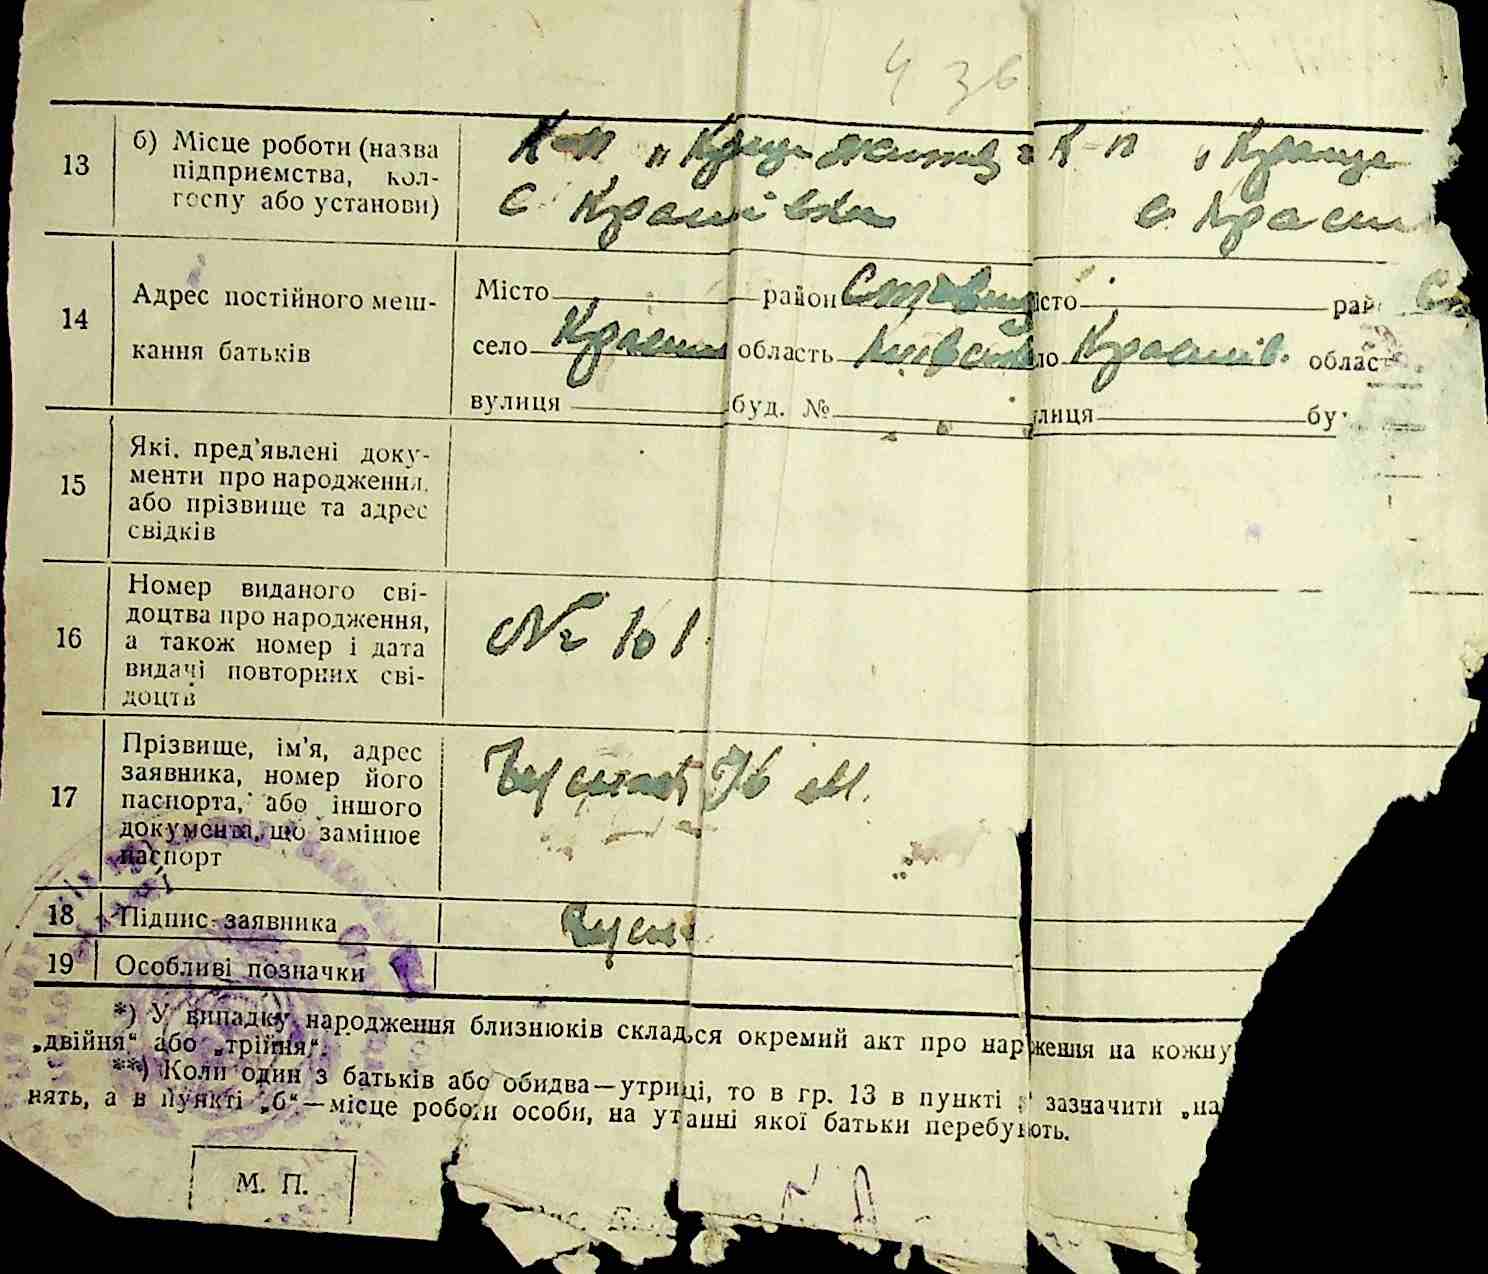 436
13 б) Місце роботи (назва підприємства, кол-госпу або установи)
К-п „Краще життя" К-п „Краще
с. Красилівка с. Краси
14 Адрес постійного меш-
кання батьків
Місто район Ставищ істо рай Ст
село Красил область Київська ло Красилів. област
вулиця буд. № лиця бу
15 Які пред'явлені доку-
менти про народження,
або прізвище та адрес
свідків
16 Номер виданого сві-
доцтва про народження,
а також номер і дата
видачі повторних сві-
доцтв
№ 101
17 Прізвище, ім'я, адрес
заявника, номер його
паспорта, або іншого
документа, що замінює
паспорт
18 Підпис заявника
19 Особливі позначки
*) У випадку народження близнюків складься окремий акт про нарження на кожну
„двійня" або „трійня".
**) Коли один з батьків або обидва—утриці, то в гр. 13 в пункті зазначити „на
нять, а в пункті „б"—місце роботи особи, на утанні якої батьки перебують.
М. П.